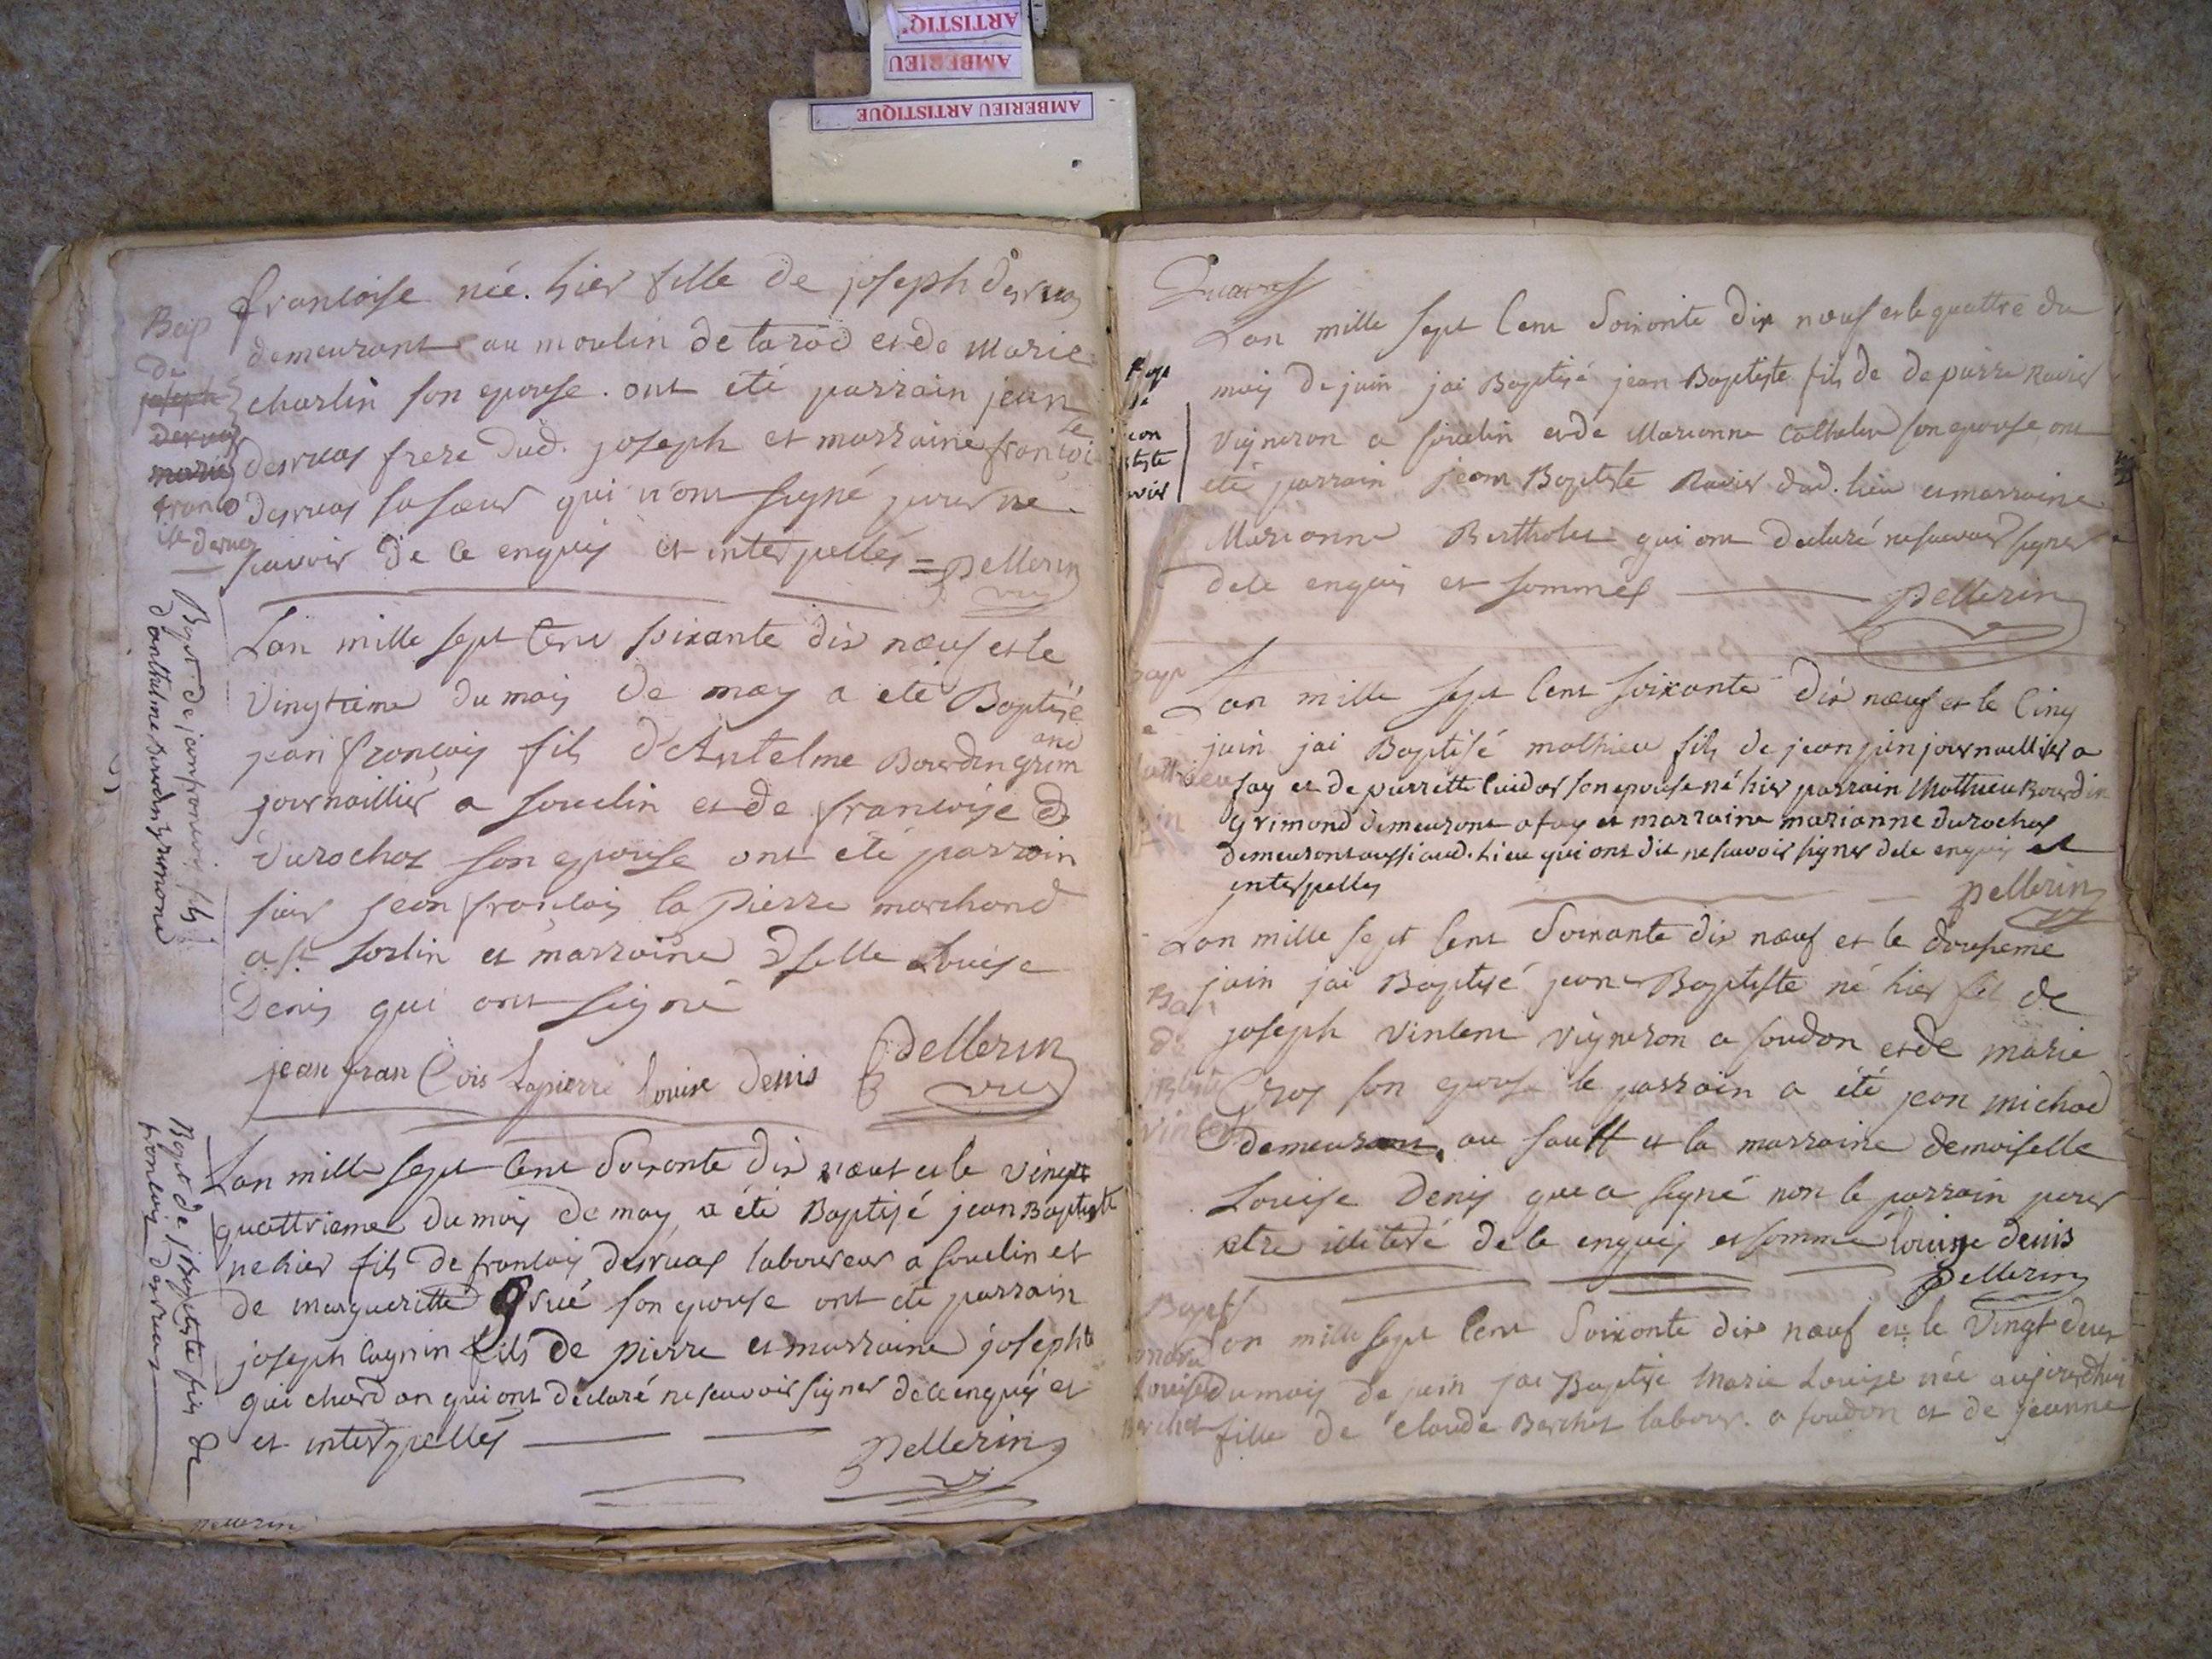 ARTISTIQ
AMBERIEU
AMBERIEU ARTISTIQUE
Bap
de
joseph
desruas
marie
franco
ise desruas
francoise née. hier fille de joseph desruas
demeurant au moulin de
et de Marie
charlin son epouse. ont été parrain jean
desruas frere dud. joseph et marraine francoi
se
desruas sa sœur qui n'ont signé pour ne
scavoir de ce enquis et interpellés = pellerin
vic
Bapt. de jean francois fils
d'anthelme Bourdin grimond
Lan mille sept cent soixante dix nœuf et le
vingtieme du mois de may a eté Baptisé
jean francois fils d'Antelme Bourdin grim
ond
journaillier a soudin et de francoise d
durochas son epouse ont été parrain
sieur jean francois la pierre marchand
a st sorlin et marraine dselle Louise
Denis qui ont signé
jean fran Cois Lapierre louise denis pellerin
vic
Bapt de jBaptiste fils de
francois desruas
Lan mille sept cent soixante dix nœuf et le vingt
quattrieme du mois de may a été Baptisé jean Baptiste
né hier fils de francois desruas laboureur a soudin et
de margueritte grué son epouse ont eté parrain
joseph cagnin fils de pierre et marraine josephte
guichardon qui ont declaré ne scavoir signer de ce enquis et
et interpellés pellerin
pellerin
Lan mille sept cent Soixante dix nœuf et le quattre du
mois de juin jai Baptisé jean Baptiste fils de de pierre Ravier
vigneron a soudin et de Marianne son epouse ont
été parrain jean Baptiste Ravier dud. lieu et marraine
Marianne Bertholet qui ont declaré ne scavoir signer
de ce enquis et sommés pellerin
Bap
Lan mille sept cent soixante dix nœuf et le cinq
juin jai Baptisé mathieu fils de jean pin journaillier a
fay et de pierrette cuidas son epouse né hier parrain Mathieu Bourdin
Grimond demeurant a fay et marraine marianne durochas
demeurant aussi aud. lieu qui ont dit ne scavoir signer de ce enquis et
interpelles pellerin
Bap
de
jBaptiste
vincent
Lan mille sept cent Soixante dix nœuf et le douzieme
juin jai Baptisé jean Baptiste né hier fils de
joseph vincent vigneron a soudon et de marie
Gros son epouse le parrain a été jean michod
demeurant au sault et la marraine demoiselle
Louise Denis que a signé non le parrain pour
etre illiteré de ce enquis et sommé louise denis
pellerin
Bapt
maria
Louise
Berchet
Lan mille sept cent Soixante dix nœuf et le vingt deux
du mois de juin jai Baptisé Marie Louise née aujourdhui
fille de claude Berchet labour. a soudon et de jeanne